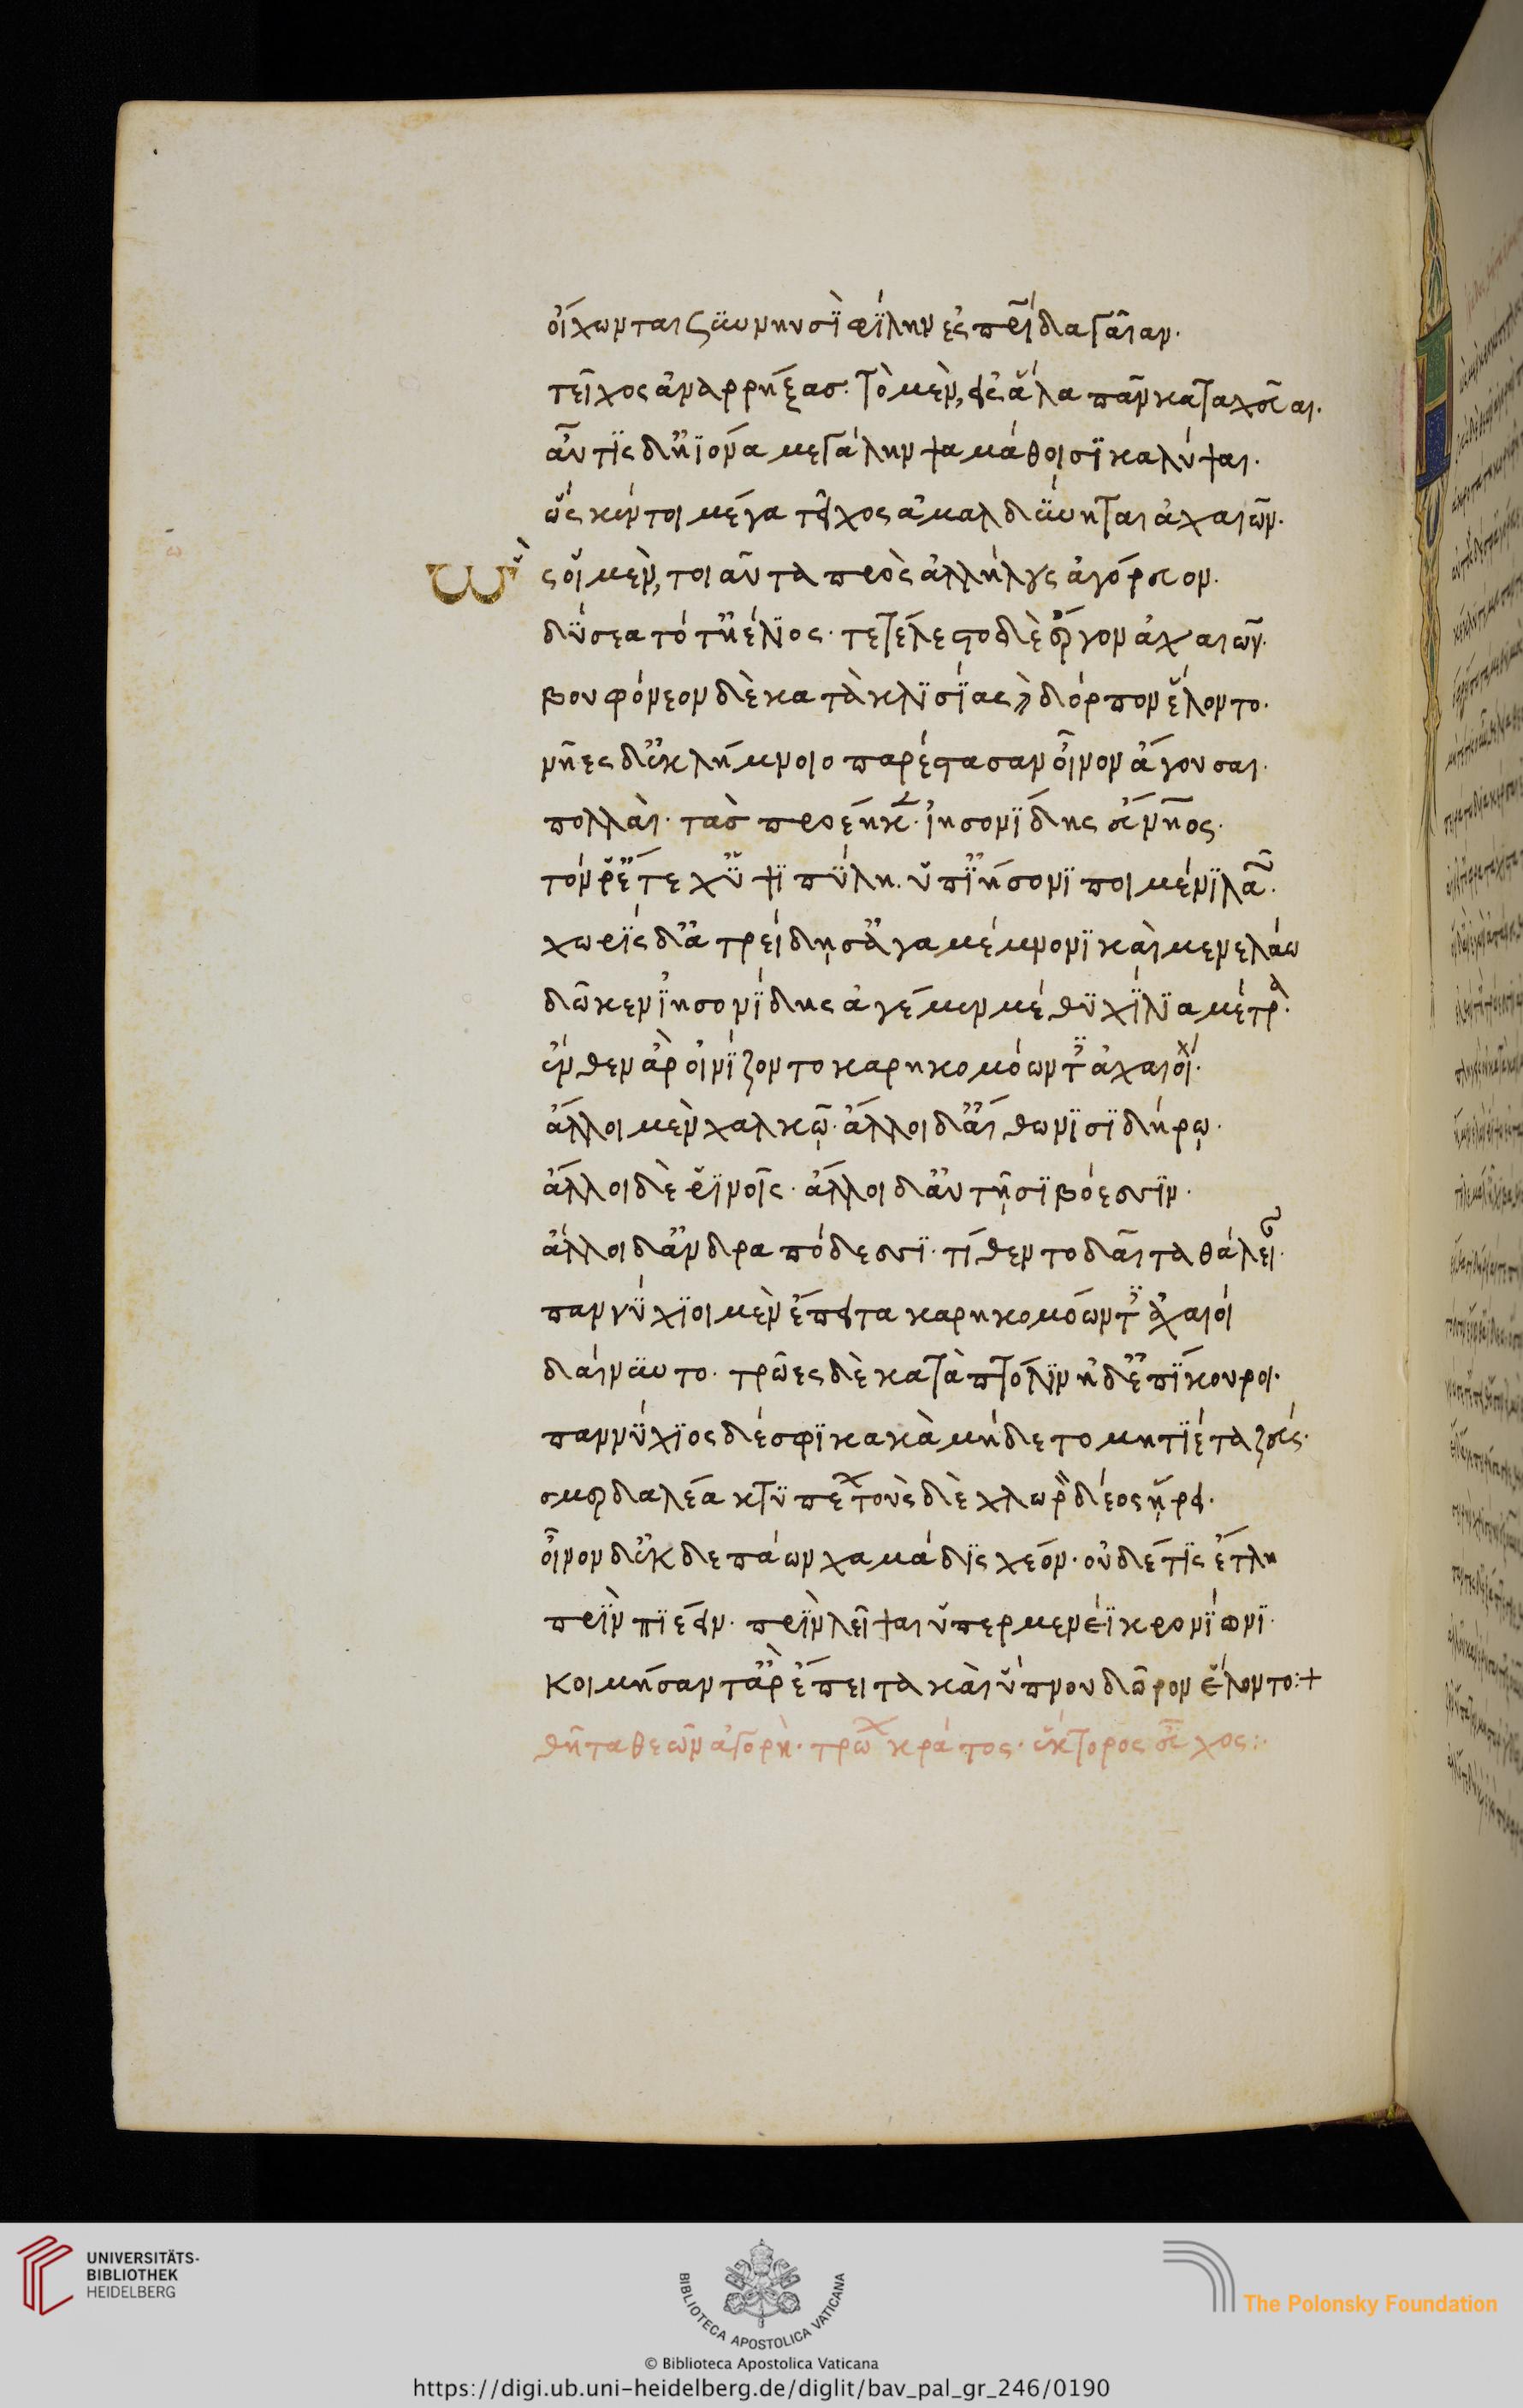 οἴχωνται ξὺν νηυσὶ φίλην ἐς πατρίδα γαῖαν.
τεῖχος ἀναρρήξας· τὸ μὲν, εἰς ἅλα πᾶν καταχεῦαι.
αὖτις δ' ἠϊόνα μεγάλην ψαμάθοισι καλύψαι.
ὥς κέν τοι μέγα τεῖχος ἀμαλδύνηται ἀχαιῶν.
ὣς οἱ μὲν, τοιαῦτα πρὸς ἀλλήλους ἀγόρευον.
δύσετο δ' ἠέλιος· τετέλεστο δὲ ἔργον ἀχαιῶν.
βουφόνεον δὲ κατὰ κλισίας, δόρπον ἕλοντο.
νῆες δ' ἐκ λήμνοιο παρέστασαν οἶνον ἄγουσαι.
πολλαί· τὰς προέηκεν ἰησονίδης εὔνηος.
τόν ῥ' ἔτεχ' ὑψιπύλη ὑπ' ἰήσονι ποιμένι λαῶν.
χωρὶς δ' ἀτρείδῃς ἀγαμέμνονι καὶ μενελάω
δῶκεν ἰησονίδης ἀγέμεν μέθυ χίλια μέτρα.
ἔνθεν ἄρ' οἰνίζοντο καρηκομόωντες ἀχαιοί.
ἄλλοι μὲν χαλκῷ· ἄλλοι δ' αἴθωνι σιδήρῳ.
ἄλλοι δὲ ῥινοῖς· ἄλλοι δ' αὐτῇσι βόεσσιν.
ἄλλοι δ' ἀνδραπόδεσσι· τίθεντο δαῖτα θάλειαν.
παννύχιοι μὲν ἔπειτα καρηκομόωντες ἀχαιοί
δαίνυντο· τρῶες δὲ κατὰ πτόλιν ἠδ' ἐπίκουροι.
παννύχιος δέ σφι κακὰ μήδετο μητίετα ζεύς.
σμερδαλέα κτυπέων τοὺς δὲ χλωρὸν δέος ᾕρει.
οἶνον δ' ἐκ δεπάων χαμάδις χέον· οὐδέ τις ἔτλη
πρὶν πιέειν· πρὶν λεῖψαι ὑπερμενέϊ κρονίωνι.
κοιμήσαντ' ἄρ' ἔπειτα καὶ ὕπνου δῶρον ἕλοντο:+
θῆτα θεῶν ἀγορή· τρώων κράτος· ἕκτορος εὖχος:
UNIVERSITÄTS-
BIBLIOTHEK
HEIDELBERG
BIBLIOTECA APOSTOLICA VATICANA
The Polonsky Foundation
© Biblioteca Apostolica Vaticana
https://digi.ub.uni-heidelberg.de/diglit/bav_pal_gr_246/0190